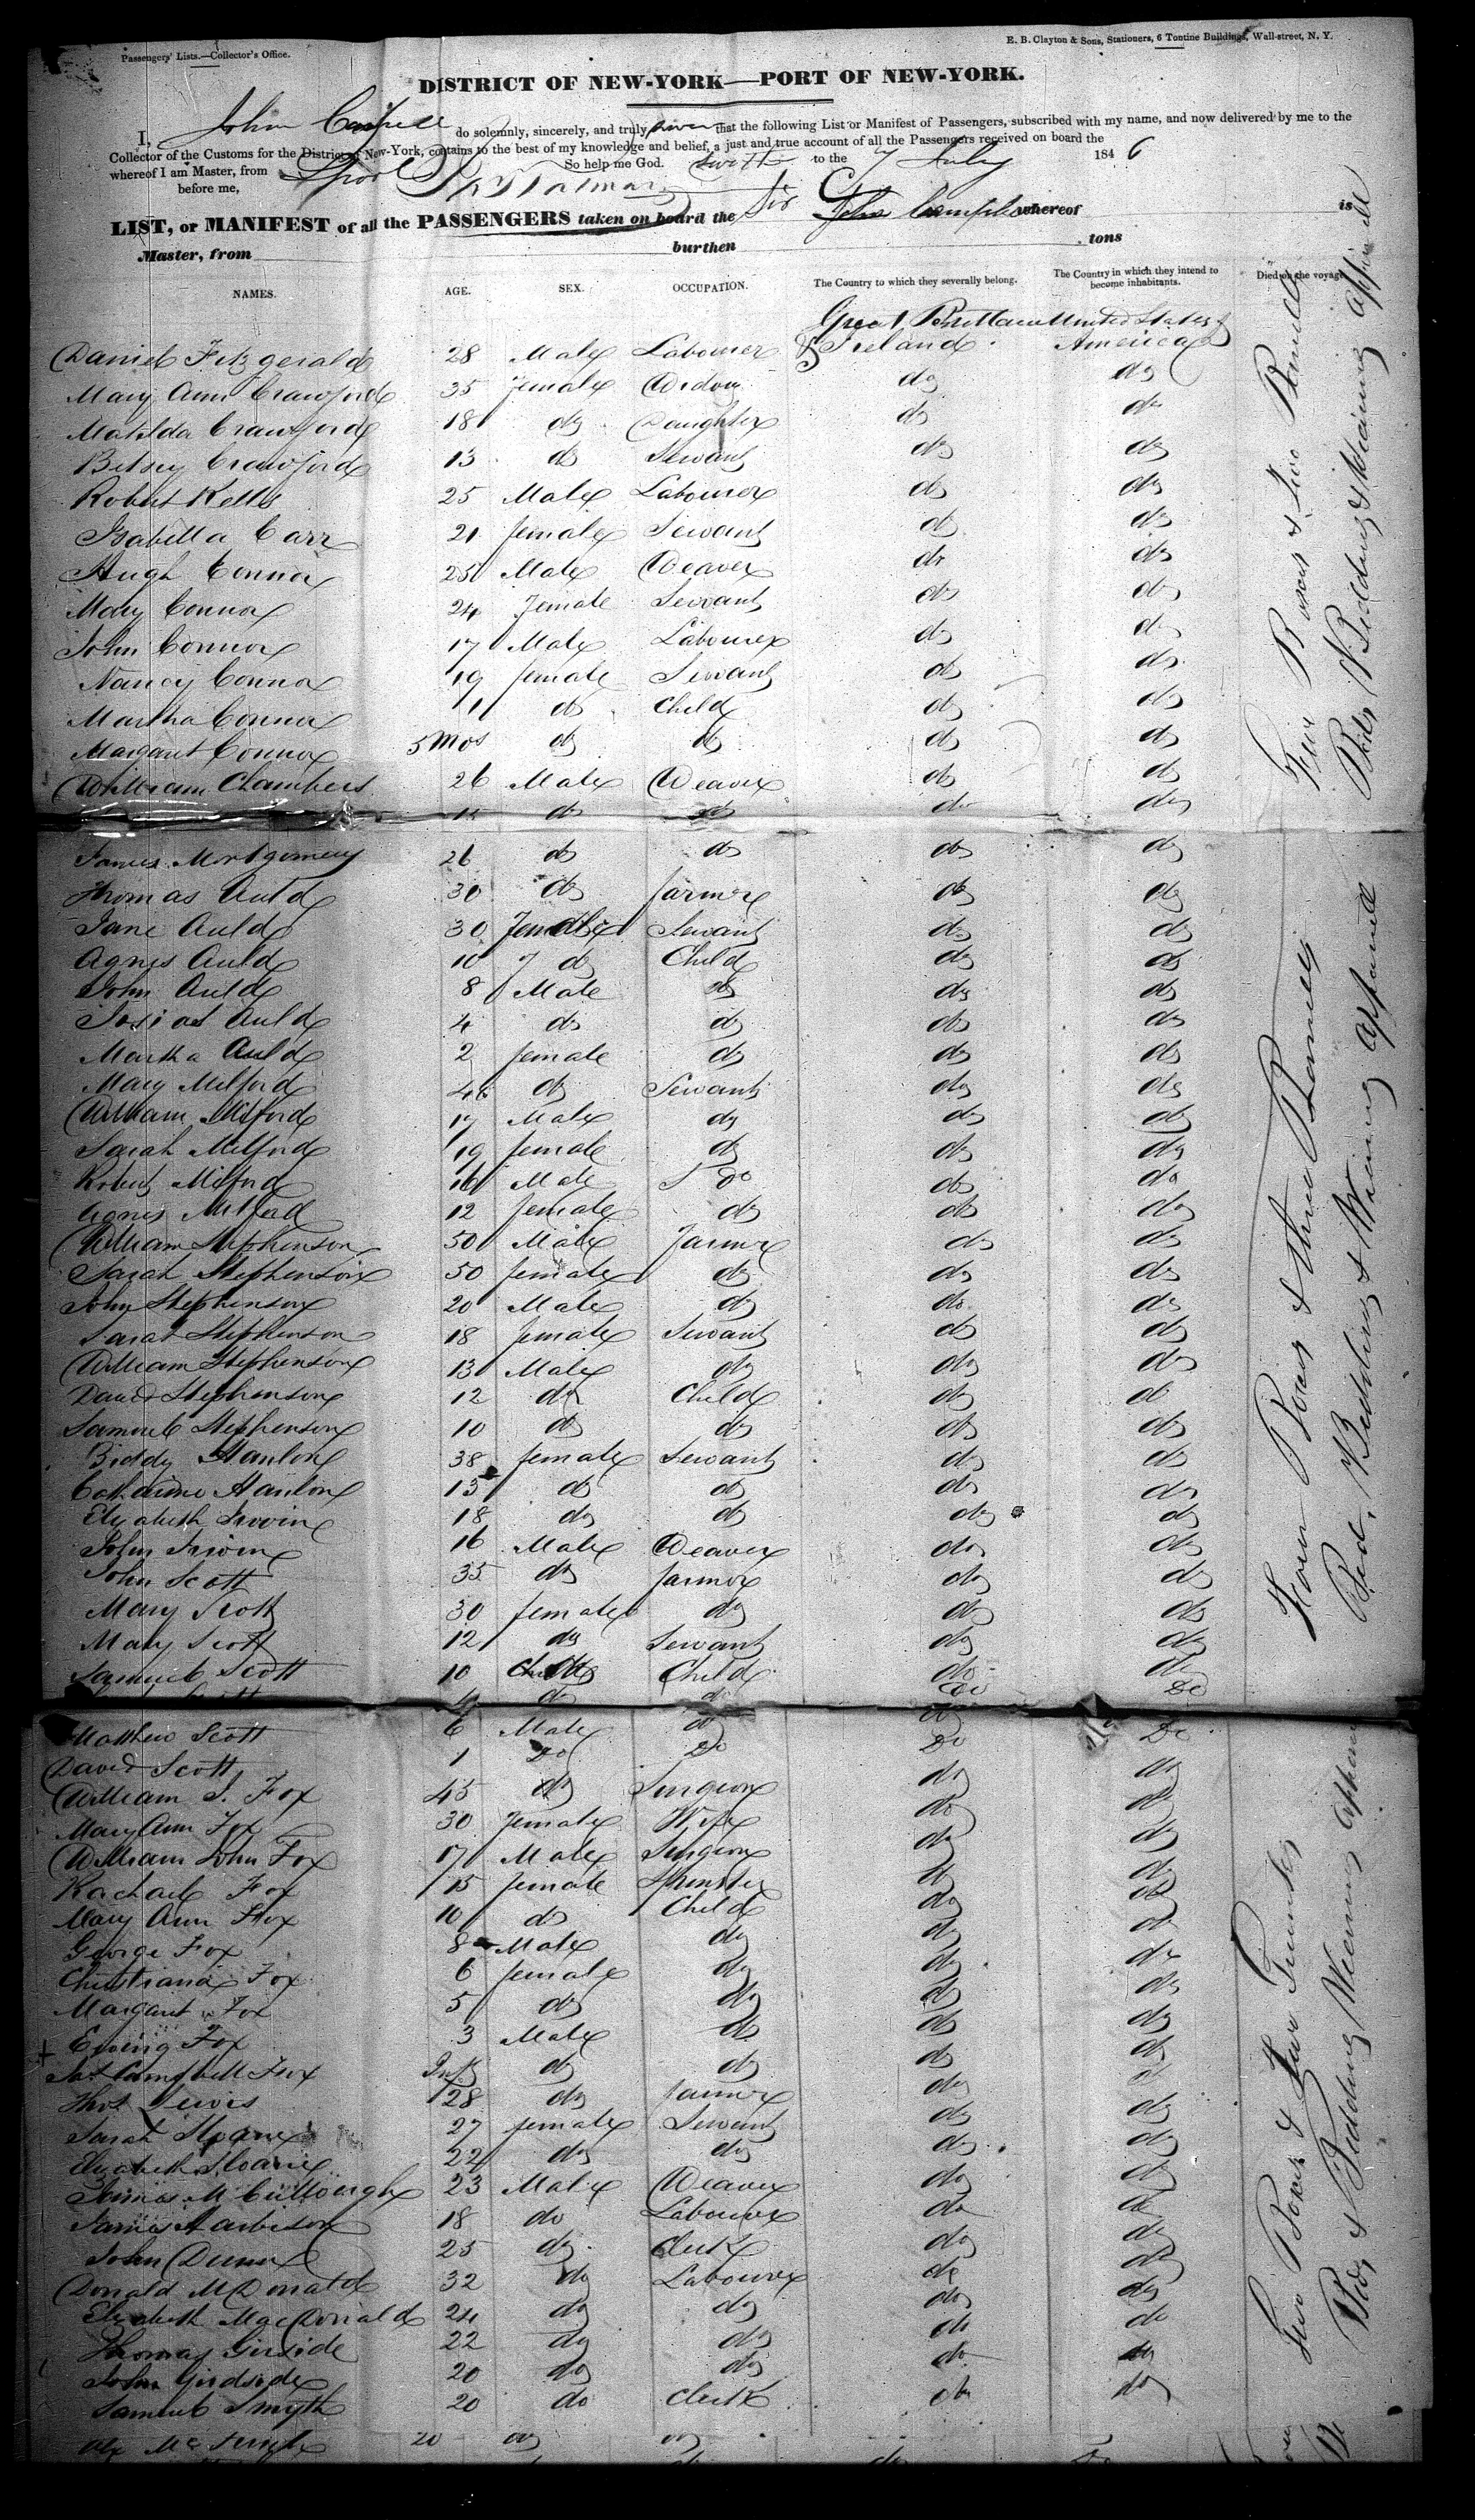 Passengers' Lists.—Collector's Office.
E. B. Clayton & Sons, Stationers, 6 Tontine Buildings, Wall-street, N. Y.
DISTRICT OF NEW-YORK—PORT OF NEW-YORK.
I, John do solemnly, sincerely, and truly swear that the following List or Manifest of Passengers, subscribed with my name, and now delivered by me to the
Collector of the Customs for the District of New-York, contains to the best of my knowledge and belief, a just and true account of all the Passengers received on board the
whereof I am Master, from Lpool So help me God. to the 7 July 1846
before me,
LIST, or MANIFEST of all the PASSENGERS taken on board the whereof is
Master, from burthen tons
NAMES. AGE. SEX. OCCUPATION. The Country to which they severally belong. The Country in which they intend to become inhabitants. Died on the voyage
Great Brittain United States of
Daniel Fitzgerald 28 Male Labourer & Ireland America
Mary Ann Crawford 35 female Widow do do
Matilda Crawford 18 do Daughter do do
Betsey Crawford 13 do Servant do do
Robert Kells 25 Male Labourer do do
Isabella Carr 21 female Servant do do
Hugh Connor 25 Male Weaver do do
Mary Connor 24 Female Servant do do
John Connor 17 Male Labourer do do
Nancy Connor 19 female Servant do do
Martha Connor 1 do Child do do
Margaret Connor 5 Mos do do do do
William Chambers 26 Male Weaver do do
do do do do
James Montgomery 26 do do do do
Thomas Auld 30 do farmer do do
Jane Auld 30 Female Servant do do
Agnes Auld 10 do Child do do
John Auld 8 Male do do do
Josias Auld 4 do do do do
Martha Auld 2 female do do do
Mary Milford do Servant do do
William Milford 17 Male do do do
Sarah Milford 19 female do do do
Robert Milford 16 Male do do do
Agnes Milford 12 female do do do
William Stephenson 50 Male Farmer do do
Sarah Stephenson 50 female do do do
John Stephenson 20 Male do do do
Sarah Stephenson 18 female Servant do do
William Stephenson 13 Male do do do
David Stephenson 12 do Child do do
Samuel Stephenson 10 do do do do
Biddy Hanlon 38 female Servant do do
Catharine Hanlon 13 do do do do
Elizabeth Irwin 18 do do do do
John Irwin 16 Male Weaver do do
John Scott 35 do farmer do do
Mary Scott 30 female do do do
Mary Scott 12 do Servant do do
Samuel Scott 10 Child do do
4 do do do Do
Matthew Scott 6 Male do do Do
David Scott 1 Do Do Do
William J. Fox 45 do Surgeon do do
Mary Ann Fox 30 female Wife do do
William John Fox 17 Male Surgeon do do
Rachael Fox 15 female Spinster do do
Mary Ann Fox 10 do Child do do
George Fox 8 Male do do do
Christiana Fox 6 female do do do
Margaret Fox 5 do do do do
Ewing Fox 3 Male do do do
Campbell Fox Inft do do do do
Thos Lewis 28 do farmer do do
Sarah Sloane 27 female Servant do do
Elizabeth Sloane 22 do do do do
James McCullough 23 Male Weaver do do
James Harbison 18 do Labourer do do
John 25 do Clerk do do
Donald McDonald 32 do Labourer do do
Elizabeth MacDonald 24 do do do do
Thomas Girdside 22 do do do do
John Girdside 20 do do do do
Samuel Smyth 20 do Clerk do do
20 do do do do
Five Boxes & two Bundles
Beds, Bedding & Wearing apparell
Four Boxes & three Bundles
Bed, Bedding & Wearing apparell
Two Boxes & four Trunks
Beds & Bedding Wearing